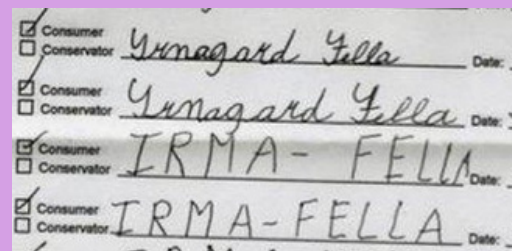 Consumer
Conservator Yrnagard Fella Date:
Consumer
Conservator Yrnagard Fella Date:
Consumer
Conservator IRMA- FELLA Date:
Consumer
Conservator IRMA-FELLA Date: